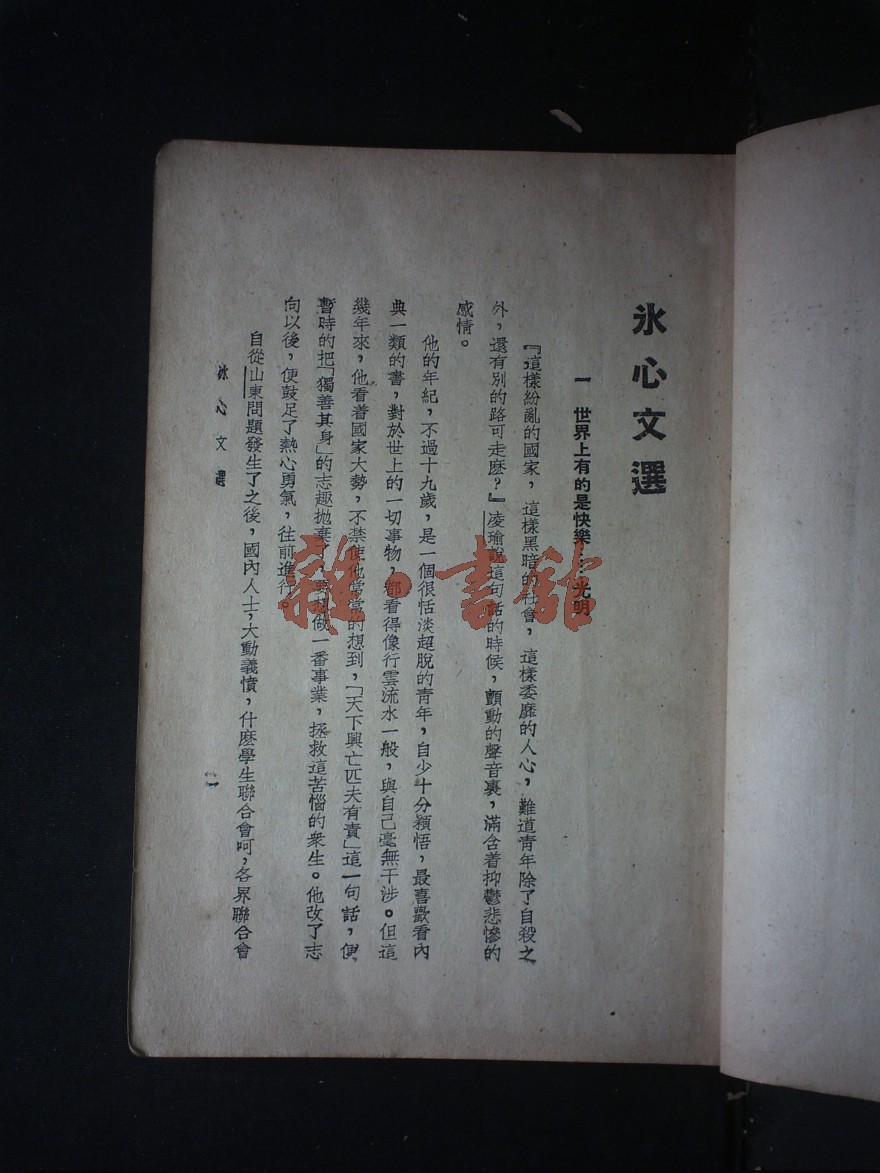 氷心文選
一　世界上有的是快樂…光明
『這樣紛亂的國家，這樣黑暗的社會，這樣委靡的人心，難道靑年除了自殺之
外，還有別的路可走麽？』凌瑜說這句話的時候，顫動的聲音裏，滿含着抑鬱悲慘的
感情。
他的年紀，不過十九歲，是一個很恬淡超脫的靑年，自少十分穎悟，最喜歡看內
典一類的書，對於世上的一切事物，都看得像行雲流水一般，與自己毫無干涉。但這
幾年來，他看着國家大勢，不禁使他常常的想到，「天下興亡匹夫有責」這一句話，便
暫時的把「獨善其身」的志趣拋棄了，要想做一番事業，拯救這苦惱的衆生。他改了志
向以後，便鼓足了熱心勇氣，往前進行。
自從山東問題發生了之後，國內人士，大動義憤，什麽學生聯合會呵，各界聯合會
氷心文選
一
雜·書館